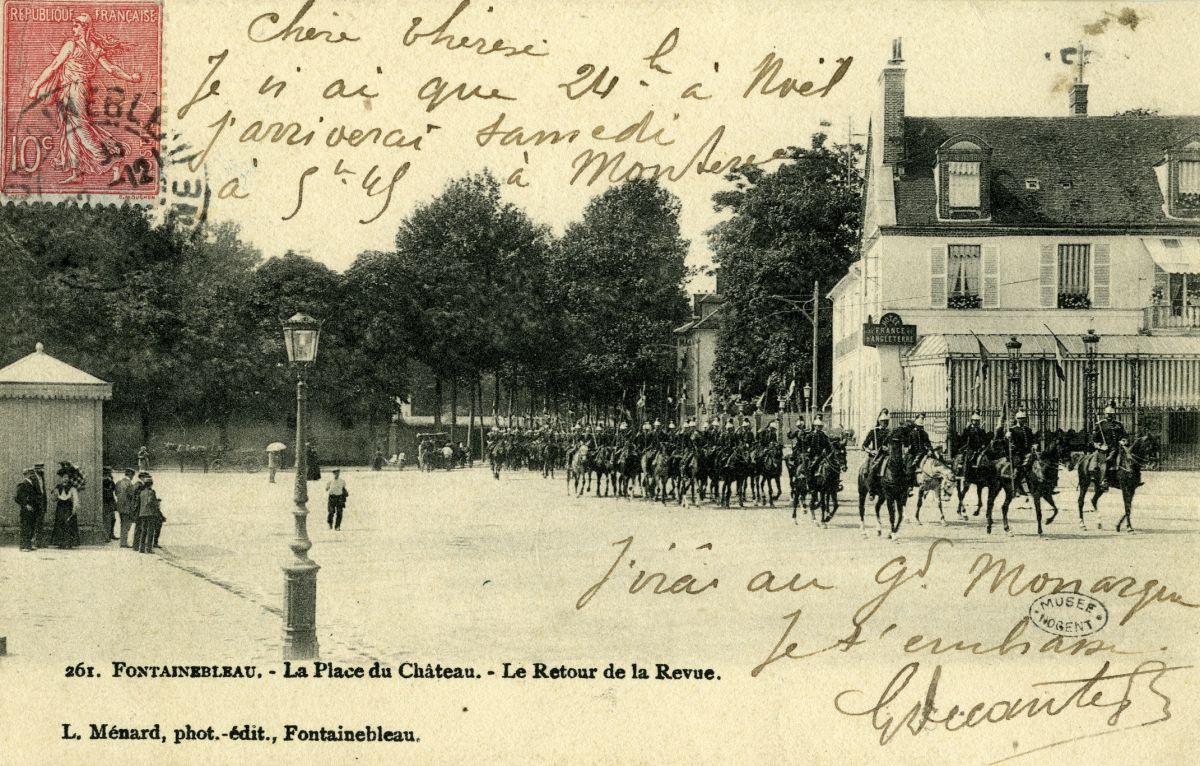 REPUBLIQUE FRANÇAISE
10c
E. MOUCHON
Chère Thérèse
Je n'ai que 24h à Noël
j'arriverai samedi
à 5h 45 à Montereau
FRANCE
D'ANGLETERRE
J'irai au Gd Monarque
Je t'embrasse.
MUSEE
NOGENT
261. FONTAINEBLEAU. - La Place du Château. - Le Retour de la Revue.
L. Ménard, phot.-édit., Fontainebleau.